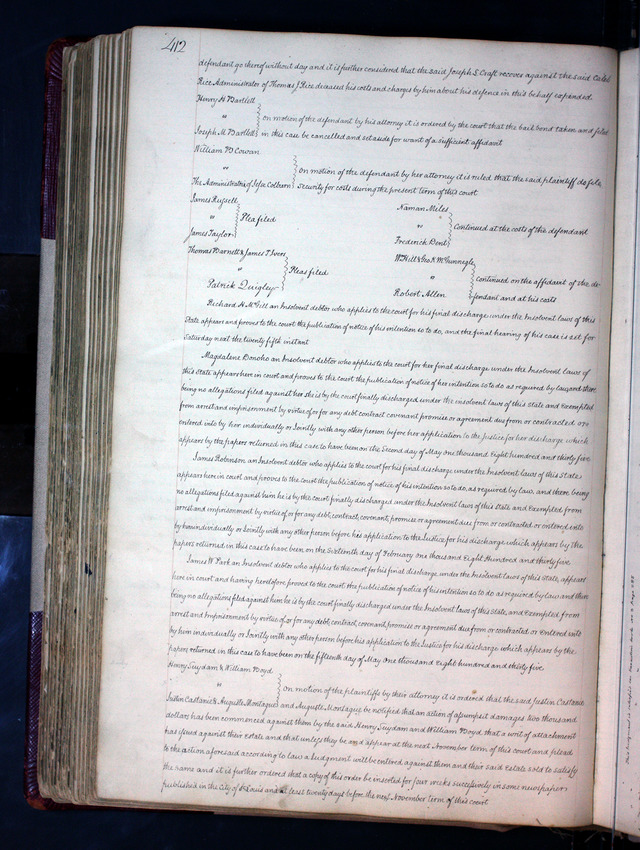 412
defendant go thereof without day and it is further considered that the said Joseph S. Craft recover against the said Caleb
Rice Administrator of Thomas J Rice deceased his costs and charges by him about his defence in this behalf expended
Henry H Bartlett
" on motion of the defendant by his attorney it is ordered by the court that the bail bond taken and filed
Joseph M. Bartlett in this case be cancelled and set aside for want of a sufficient affidavit
William D Cowan
" on motion of the defendant by her attorney it is ruled that the said plaintiff do file
The Administratrix of Jesse Colburn security for costs during the present term of this court
James Russell
" Plea filed
James Taylor
Naman Miles
" Continued at the costs of the defendant
Frederick Dent
Thomas Barnett & James T Ivers
" Pleas filed
Patrick Quigley
Wm Hill & Geo K McGunnegle
" continued on the affidavit of the de-
Robert Allen fendant and at his costs
Richard H. McGill an Insolvent debtor who applies to the court for his final discharge under the Insolvent laws of this
State appears and proves to the court the publication of notice of his intention so to do, and the final hearing of his case is set for
Saturday next the twenty fifth instant
Magdalene Donoho an Insolvent debtor who applies to the court for her final discharge under the Insolvent laws of
this State appears here in court and proves to the court the publication of notice of her intention so to do as required by law and there
being no allegations filed against her she is by the court finally discharged under the insolvent laws of this state and Exempted
from arrest and imprisonment by virtue of or for any debt contract covenant promise or agreement due from or contracted or
entered into by her individually or Jointly with any other person before her application to the Justice for her discharge which
appears by the papers returned in this case to have been on the Second day of May one thousand Eight hundred and thirty five
James Robinson an Insolvent debtor who applies to the court for his final discharge under the Insolvent laws of this State
appears here in court and proves to the court the publication of notice of his intention so to do, as required by law, and there being
no allegations filed against him he is by the court finally discharged under the Insolvent laws of this State and Exempted from
arrest and imprisonment by virtue of or for any debt, contract, covenant, promise or agreement due from or contracted or entered into
by him individually or Jointly with any other person before his application to the Justice for his discharge which appears by the
papers returned in this case to have been on the Sixteenth day of February one thousand Eight Hundred and thirty five
James W Park an Insolvent debtor who applies to the court for his final discharge under the Insolvent laws of this State, appears
here in court and having heretofore proved to the court the publication of notice of his intention so to do as required by law and there
being no allegations filed against him he is by the court finally discharged under the Insolvent laws of this State, and Exempted from
arrest and Imprisonment by virtue of or for any debt, contract, covenant, promise or agreement due from or contracted or entered into
by him individually or Jointly with any other person before his application to the Justice for his discharge which appears by the
papers returned in this case to have been on the fifteenth day of May one thousand Eight hundred and thirty five
Henry Suydam & William Boyd
" on motion of the plaintiffs by their attorney it is ordered that the said Justin Castanie
Justin Castanie & Auguste Montague and Auguste Montague be notified that an action of assumpsit damages two thousand
dollars has been commenced against them by the said Henry Suydam and William Boyd, that a writ of attachment
has issued against their Estate and that unless they be and appear at the next November term of this court and plead
to the action aforesaid according to law a Judgment will be entered against them and their said Estate sold to satisfy
the same and it is further ordered that a copy of this order be inserted for four weeks successively in some newspaper
published in the City of St Louis and at least twenty days before the next November term of this court